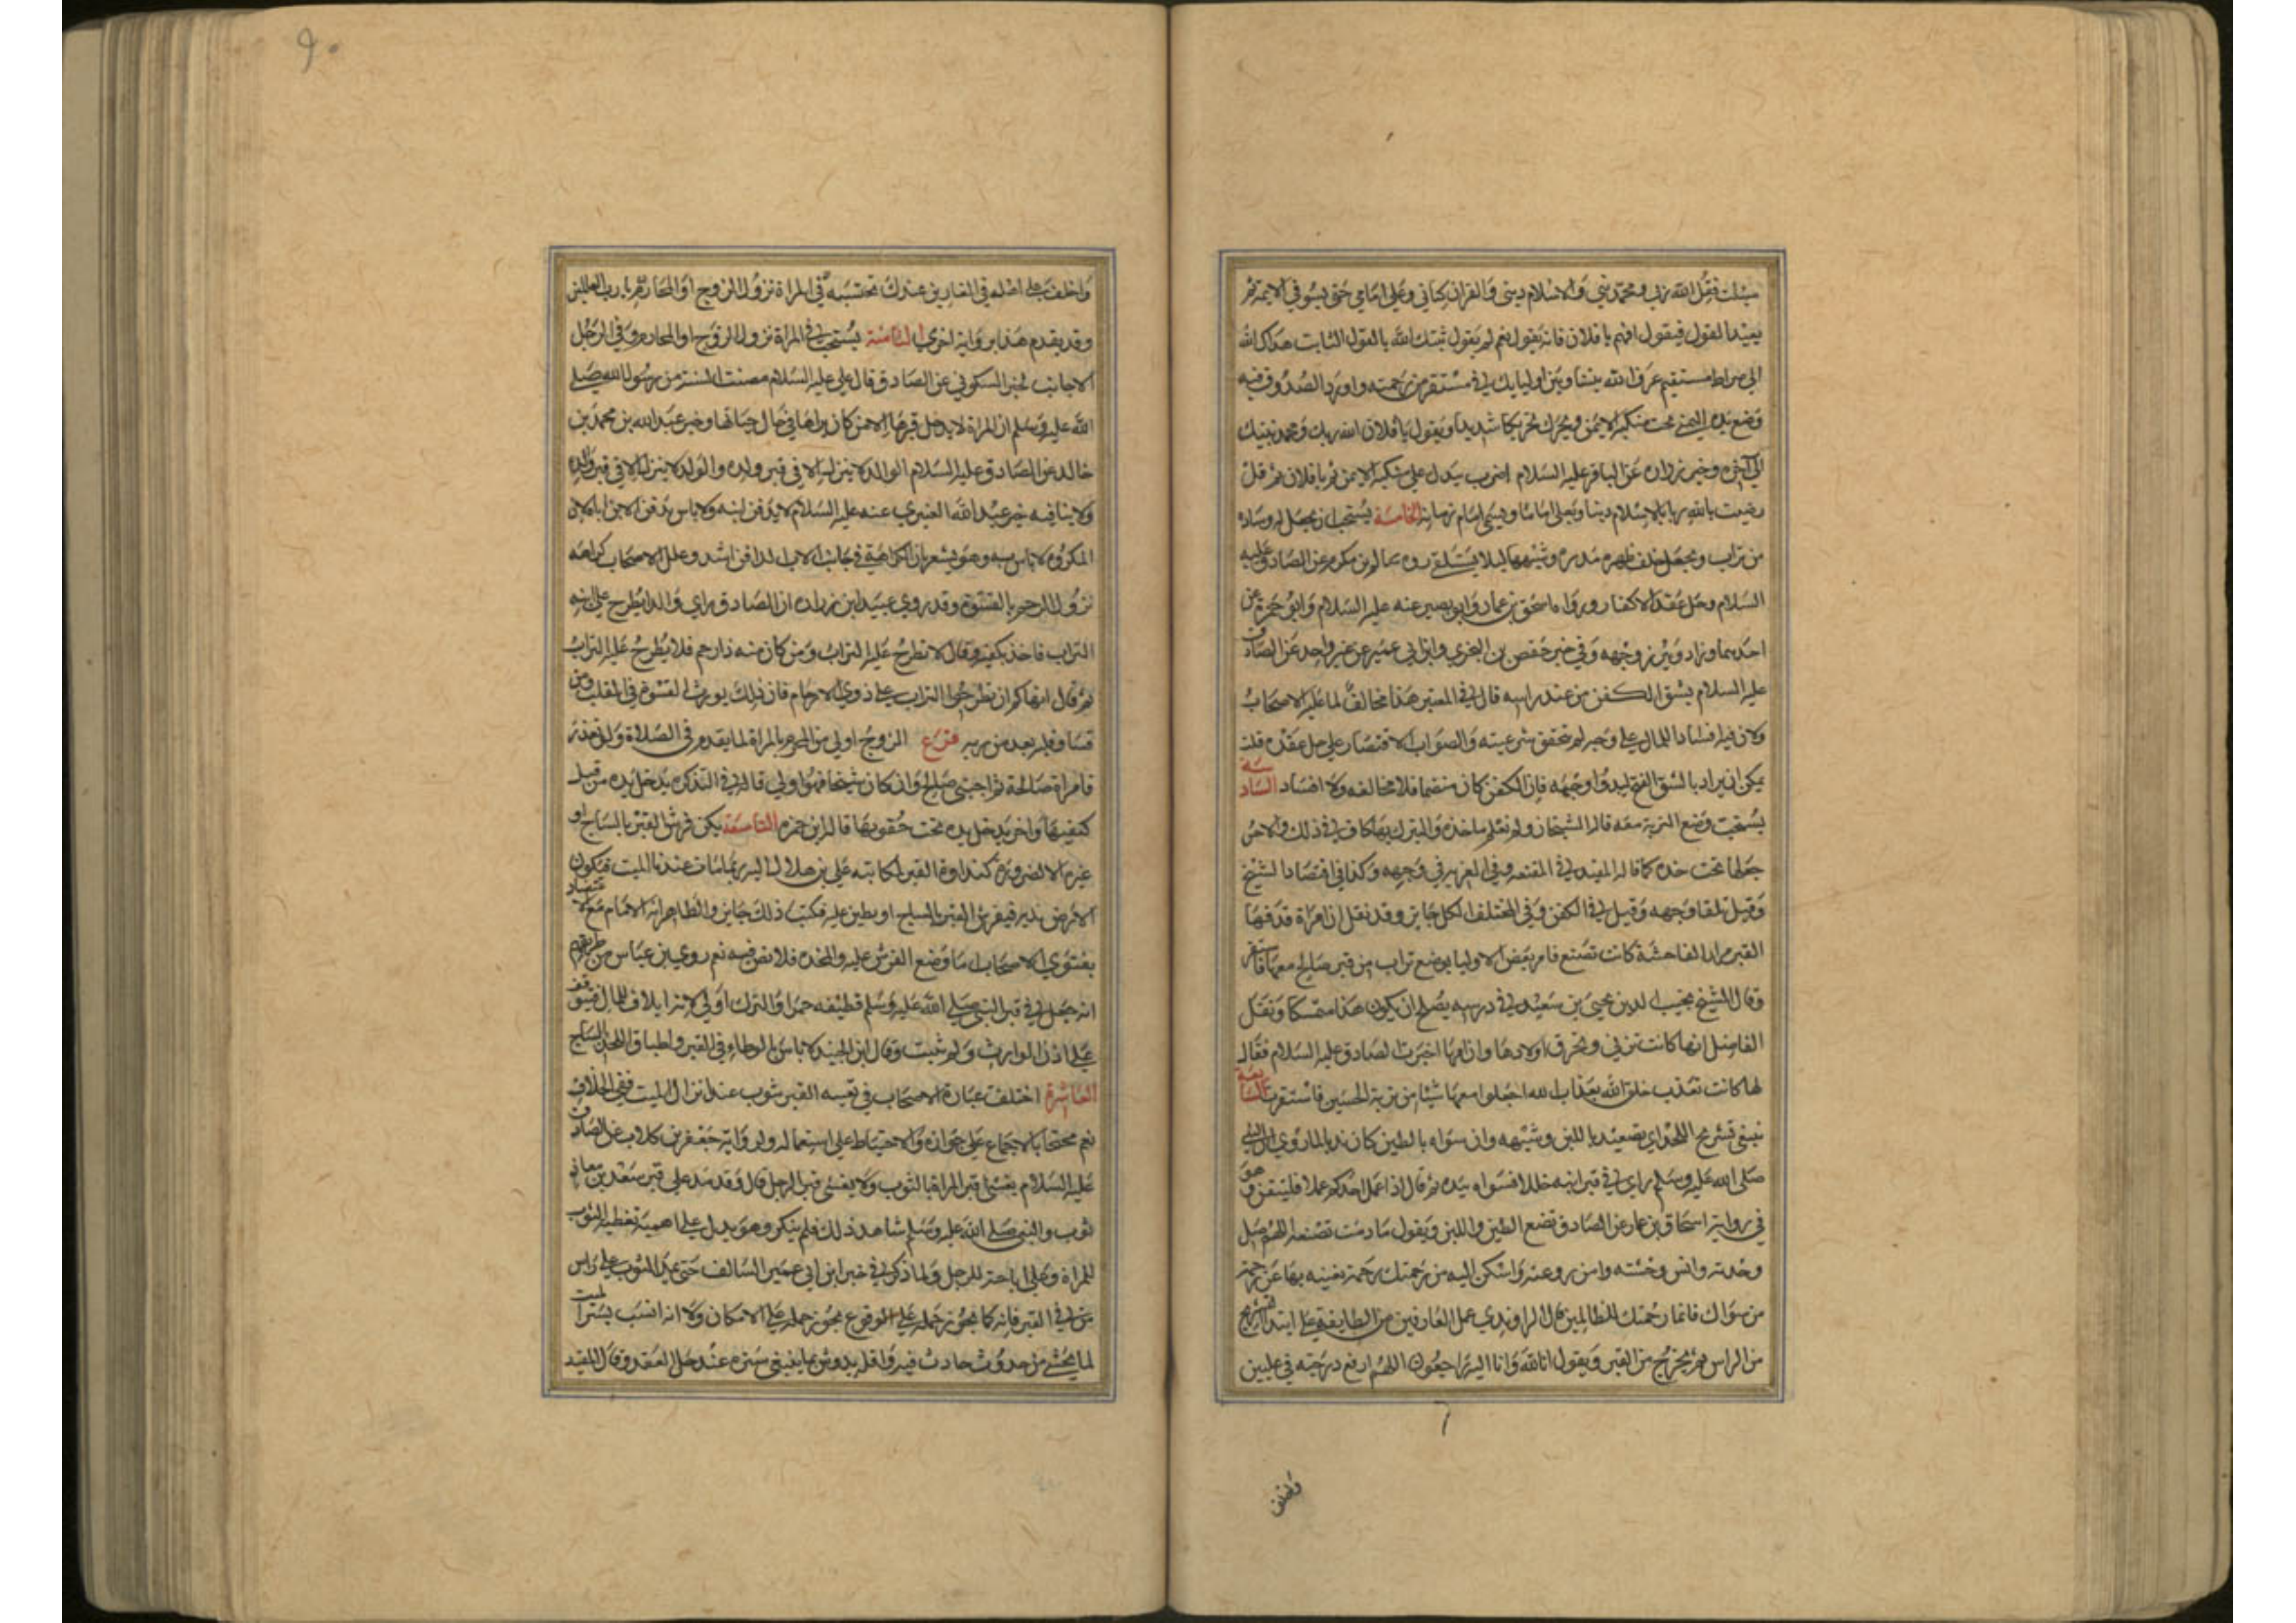 سئلت فقل الله ربي ومحمد نبي والاسلام ديني والقران كتابي وعلي امامي حتى يسوفي الائمه ثم
يعيد القول فيقول افهم يا فلان فانه يقول نعم ثم يقول ثبتك الله بالقول الثابت هداك الله
الى صراط مستقيم عرف الله بينك وبين اوليايك في مستقر من رحمته واورد الصدوق فيه
وضع يده اليمنى تحت منكبه الايمن ويحرك تحريكا شديدا ويقول يا فلان الله ربك ومحمد نبيك
الى آخره وخبر زراره عن الباقر عليه السلام اضرب بيدك على منكبه الايمن ثم يا فلان ثم قل
رضيت بالله ربا وبالاسلام دينا وبعلي اماما ويسمي امام زمانه الخامسة يستحب ان يجعل له وساده
من تراب ويجعل خلف ظهره مدره وشبهها ليلا يستلقي رواه سالم بن مكرم عن الصادق عليه
السلام وحل عقد الاكفان رواه اسحق بن عمار وابو بصير عنه عليه السلام وابو حمزة عن
احدهما وزاد ويبرز وجهه وفي خبر حفص بن البختري وابن ابي عمير عن غير واحد عن الصادق
عليه السلام يشق الكفن من عند راسه قال في المعتبر هذا مخالف لما عليه الاصحاب
ولان فيه افساد المال على وجه لم تتحقق شرعيته والصواب الاقتصار على حل عقده قلت
يمكن ان يراد بالشق الفتح ليبدوا وجهه فان الكفن كان منضما فلا مخالفه ولا افساد السادسة
يستحب وضع التربة معه قاله الشيخان ولم نعلم ماخذه والتبرك بها كاف في ذلك والاحسن
جعلها تحت خده كما قاله المفيد في المقنعه وفي العزيه في وجهه وكذا في اقتصاد الشيخ
وقيل تلقا وجهه وقيل في الكفن وفي المختلف الكل جايز وقد نقل ان امراة قذفها
القبر مرارا لفاحشة كانت تصنع فامر بعض الاوليا بوضع تراب من قبر صالح معها فاستقرت
وقال الشيخ نجيب الدين يحيى بن سعيد في درسه يصلح ان يكون هذا متمسكا ونقل
الفاضل انها كانت تزني وتحرق اولادها وان امها اخبرت الصادق عليه السلام فقال
انها كانت تعذب خلق الله بعذاب الله اجعلوا معها شيئا من تربة الحسين فاستقرت السابعة
ينبغي تشريج اللحد اي تنضيده باللبن وشبهه وان سواه بالطين كان ندبا لما روي ان النبي
صلى الله عليه وسلم راي في قبر ابنه خللا فسواه بيده ثم قال اذا عمل احدكم عملا فليتقن وهو
في رواية اسحاق بن عمار عن الصادق تضع الطين واللبن ويقول مادمت تصنعه اللهم صل
وحدته وانس وحشته وامن روعته واسكن اليه من رحمتك رحمة تغنيه بها عن رحمة
من سواك فانما رحمتك للظالمين قال الراوندي عمل العارفين من الطايفة على ابتدا التشريج
من الراس ثم يخرج من القبر ويقول انا لله وانا اليه راجعون اللهم ارفع درجته في عليين
واخلف
٩٠
واخلف على اهله في الغابرين عندك نحتسبه في المراة نزول الزوج او المحارم يا رب العالمين
وقد يقدم هذا برواية اخرى الثامنة يستحب في المراة نزول الزوج او المحارم وفي الرجل
الاجانب لخبر السكوني عن الصادق قال علي عليه السلام مضت السنة من رسول الله صلى
الله عليه وسلم ان المراة لا يدخل قبرها الا من كان يراها في حال حياتها وخبر عبد الله بن محمد بن
خالد عن الصادق عليه السلام الوالد لا ينزل في قبر ولده والولد لا ينزل في قبر والده
ولا ينافيه خبر عبد الله العنبري عنه عليه السلام لا يدفن ابنه ولا باس بدفن الابن اباه لان
المكروه لا باس به وهو يشعر بان الكراهية في جانب الاب لدافن اشد وعلل الاصحاب كراهه
نزول الرحم بالقسوة وقد روي عبيد ابن زراره ان الصادق راى والدا يطرح على ابنه
التراب فاخذ بكفيه وقال لا تطرح عليه التراب ومن كان منه ذا رحم فلا يطرح عليه التراب
ثم قال انهاكم ان تطرحوا التراب على ذوي الارحام فان ذلك يورث القسوة في القلب ومن
قسا قلبه بعد من ربه فرع الزوج اولى من المحرم بالمراة لما يقدم في الصلاة ولو تعذر
فامراة صالحة ثم اجنبي صالح وان كان شيخا فهو اولى قاله في التذكرة يدخل يده من قبل
كتفيها واخر يدخل يده تحت حقويها قاله ابن حمزه التاسعة يكره فرش القبر بالساج او
غيره الا لضرورة كنداوة القبر لمكاتبة علي بن هلال اليه ربما مات عندنا الميت فتكون
الارض ندية فيفرش القبر بالساج او يطبق عليه فكتب ذلك جايز والظاهر انه الامام مع اعتضاده
بفتوى الاصحاب اما وضع الفرش عليه والمخده فلا نص فيه نعم روي ابن عباس من طريقهم
انه جعل في قبر النبي صلى الله عليه وسلم قطيفه حمرا والترك اولى لانه اتلاف للمال فيتوقف
على اذن الوارث ولم يثبت وقال ابن الجنيد لا باس بالوطاء في القبر واطباق اللحد بالساج
العاشرة اختلفت عبارة الاصحاب في تغشيه القبر بثوب عند انزال الميت ففي الخلاف
نعم محتجا بالاجماع على جوازه والاحتياط على استعماله ولرواية جعفر بن كلاب عن الصادق
عليه السلام يغشى قبر المراة بالثوب ولا يغشى قبر الرجل قال وقد مد على قبر سعد بن معاذ
ثوب والنبي صلى الله عليه وسلم شاهد ذلك فلم ينكر وهو يدل على اهمية تغطيه الثوب
للمراة وعلى اباحته للرجل ولما ذكر في خبر ابن ابي عمير السالف حتى يمد الثوب على راس
من في القبر فانه كما يجوز حمله على الوقوع يجوز حمله على الامكان ولانه انسب بستر الميت
لما يخشى من حدوث حادث فيه واقله بدو شي مما ينبغي ستره عند حل العقد وقال المفيد